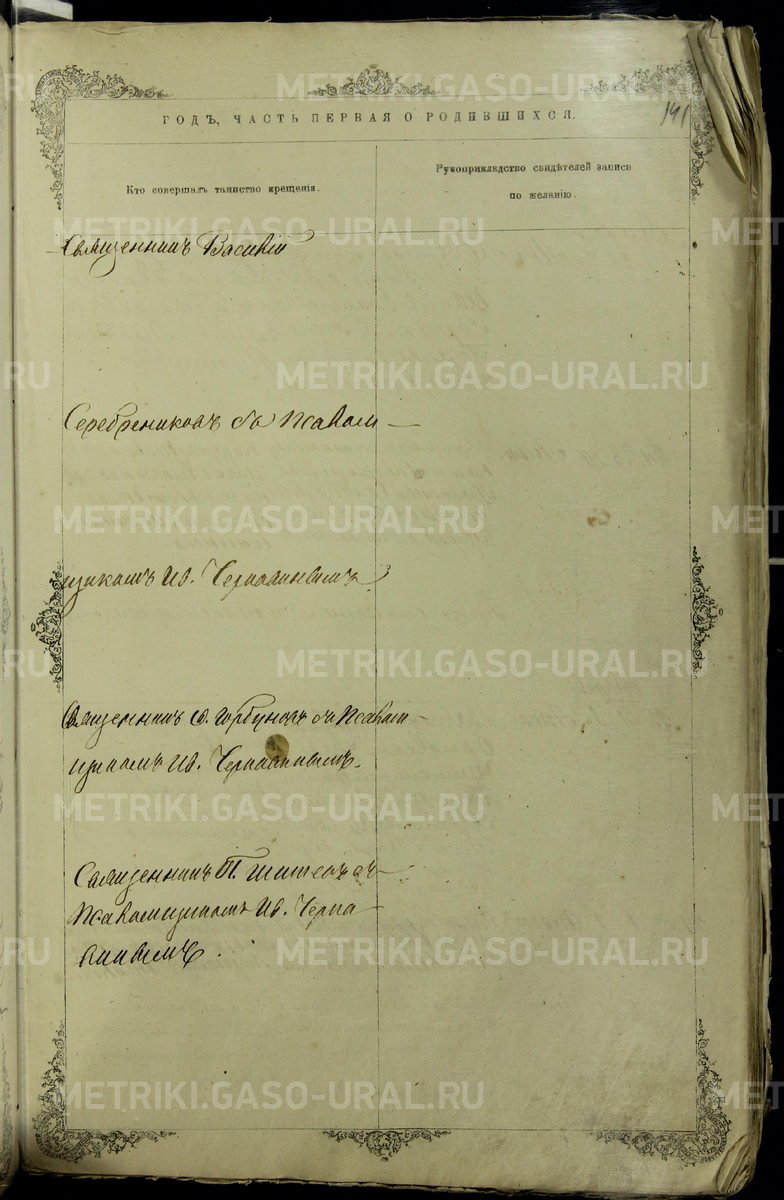 ГОДЪ, ЧАСТЬ ПЕРВАЯ О РОДИВШИХСЯ.
141
Кто совершалъ таинство крещенія.
Рукоприкладство свидѣтелей записи
по желанію.
Священникъ Василій
Серебрениковъ съ Псалом
щикомъ Ив. Чернавинымъ
Священникъ Горбуновъ съ Псалом
щикомъ Ив. Чернавинымъ.
Священникъ П. съ
Псаломщикомъ Ив. Черна
винымъ.
METRIKI.GASO-URAL.RU